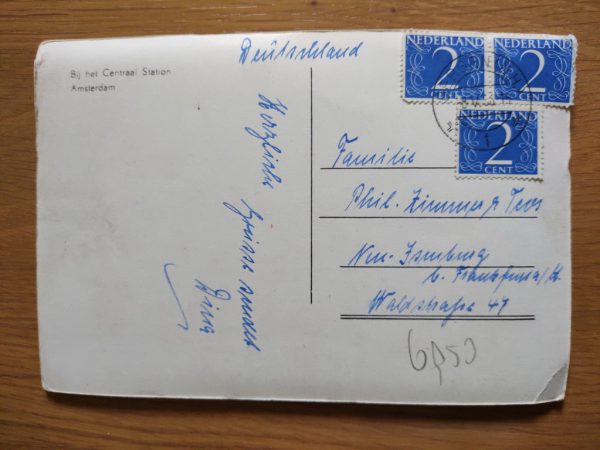 Bij het Centraal Station
Amsterdam
Deutschland
NEDERLAND
2
CENT
NEDERLAND
2
CENT
NEDERLAND
2
CENT
Herzliche
Grüsse sendet
Familie
Phil. Zimmer
Neu-Isenburg
b. Frankfurt a/M.
Waldstraße 47